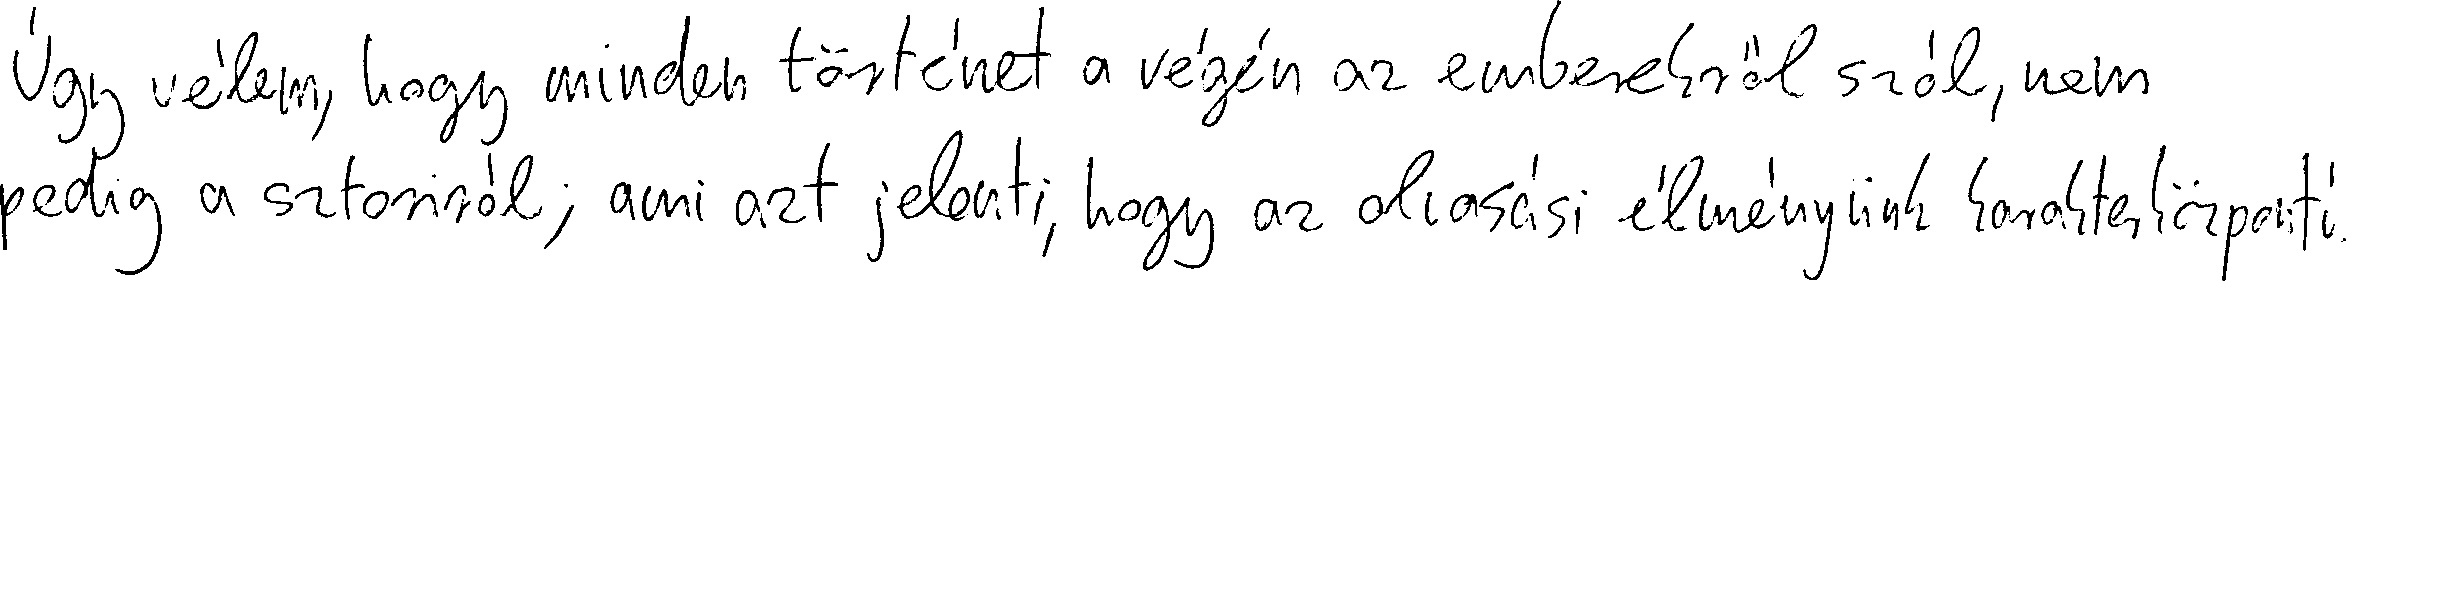 Úgy vélem, hogy minden történet a végén az emberekről szól, nem
pedig a sztoriról; ami azt jelenti, hogy az olvasási élményünk karakterközpontú.